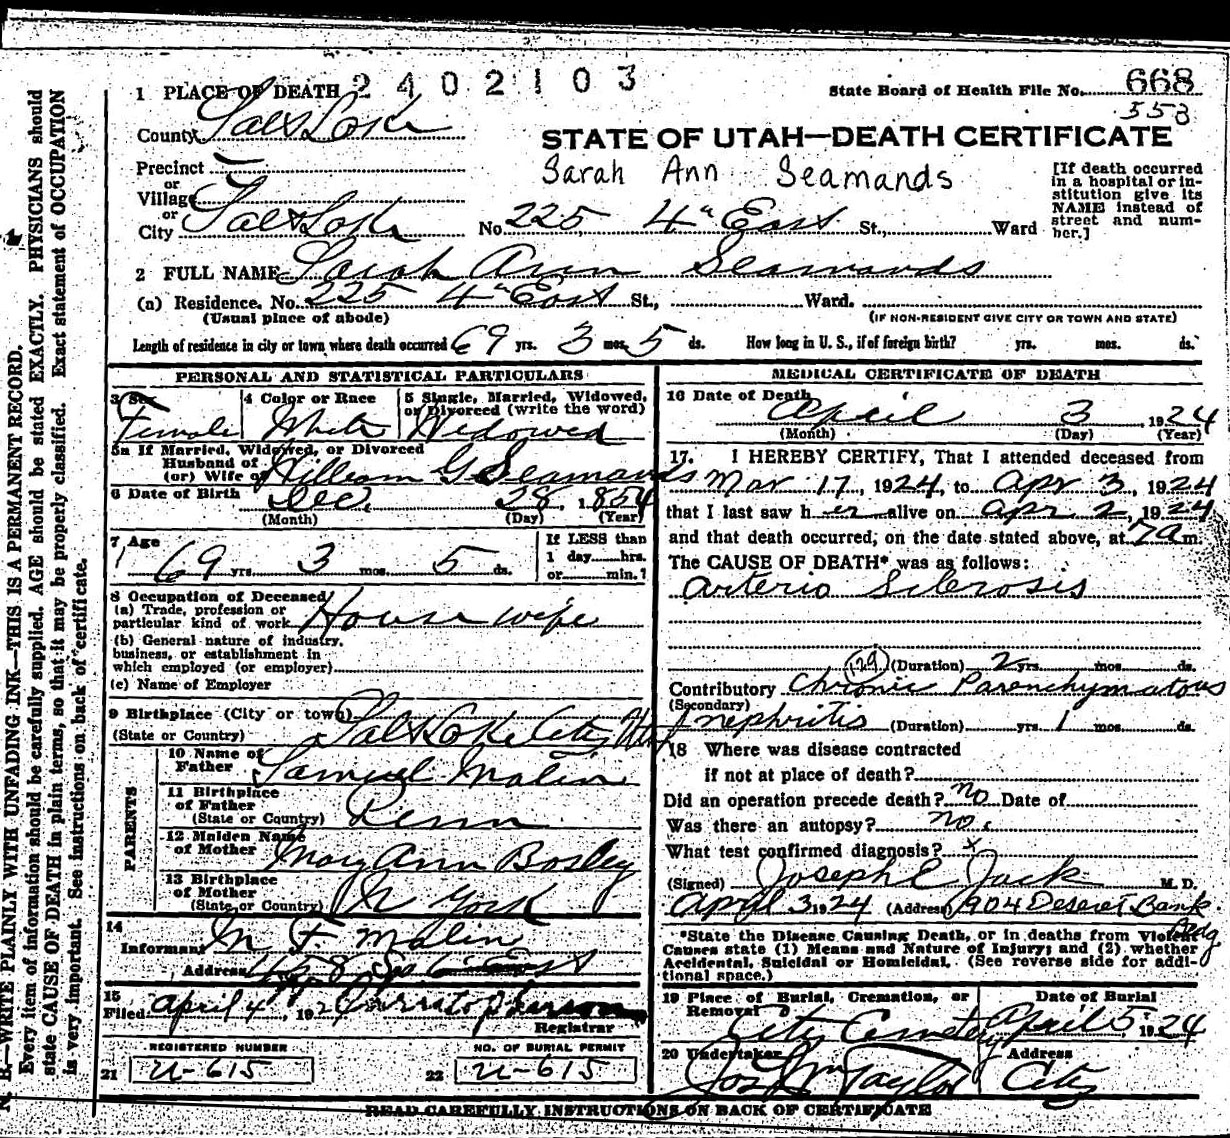 1 PLACE OF DEATH 2 4 0 2 1 0 3
State Board of Health File No. 668
558
County Salt Lake
STATE OF UTAH—DEATH CERTIFICATE
Precinct
or
Village
or
City Salt Lake
Sarah Ann Seamands
No. 225 4" East St., Ward
[If death occurred
in a hospital or in-
stitution give its
NAME instead of
street and num-
ber.]
2 FULL NAME Sarah Ann Seamands
(a) Residence. No. 225 4" East St., Ward.
(Usual place of abode) (IF NON-RESIDENT GIVE CITY OR TOWN AND STATE)
Length of residence in city or town where death occurred 69 yrs. 3 mos. 5 ds. How long in U. S., if of foreign birth? yrs. mos. ds.
PERSONAL AND STATISTICAL PARTICULARS
3 Sex 4 Color or Race 5 Single, Married, Widowed,
or Divorced (write the word)
Female White Widowed
5a If Married, Widowed, or Divorced
Husband of
(or) Wife of William G Seamands
6 Date of Birth Dec. 28, 1854
(Month) (Day) (Year)
7 Age If LESS than
1 day hrs.
69 yrs. 3 mos. 5 ds. or min.?
8 Occupation of Deceased
(a) Trade, profession or
particular kind of work House wife
(b) General nature of industry,
business, or establishment in
which employed (or employer)
(c) Name of Employer
9 Birthplace (City or town) Salt Lake City Utah
(State or Country)
PARENTS
10 Name of
Father Samuel Malin
11 Birthplace
of Father
(State or Country) Penn
12 Maiden Name
of Mother Mary Ann Bosley
13 Birthplace
of Mother
(State or Country) N York
14
Informant M F. Malin
Address 458 So 6 East
15
Filed April 4, 192
Registrar
REGISTERED NUMBER NO. OF BURIAL PERMIT
21 U-615 22 U-615
MEDICAL CERTIFICATE OF DEATH
16 Date of Death
April 3 1924
(Month) (Day) (Year)
17. I HEREBY CERTIFY, That I attended deceased from
Mar 17, 1924, to Apr 3, 1924
that I last saw her alive on Apr 2, 1924
and that death occurred, on the date stated above, at 7 a m.
The CAUSE OF DEATH* was as follows:
Arterio Sclerosis
(129) (Duration) 2 yrs. mos. ds.
Contributory Chronic Parenchymatous
(Secondary)
nephritis (Duration) yrs. 1 mos. ds.
18 Where was disease contracted
if not at place of death?
Did an operation precede death? no Date of
Was there an autopsy? no.
What test confirmed diagnosis? x
(Signed) Joseph E Jack M. D.
April 3 1924 (Address) 904 Deseret Bank
Bldg
*State the Disease Causing Death, or in deaths from Violent
Causes state (1) Means and Nature of Injury; and (2) whether
Accidental, Suicidal or Homicidal. (See reverse side for addi-
tional space.)
19 Place of Burial, Cremation, or Date of Burial
Removal
City Cemetery April 5 1924
20 Undertaker Address
Jos Wm Taylor City
READ CAREFULLY INSTRUCTIONS ON BACK OF CERTIFICATE
N. B.—WRITE PLAINLY WITH UNFADING INK—THIS IS A PERMANENT RECORD.
Every item of information should be carefully supplied. AGE should be stated EXACTLY. PHYSICIANS should
state CAUSE OF DEATH in plain terms, so that it may be properly classified. Exact statement of OCCUPATION
is very important. See instructions on back of certificate.